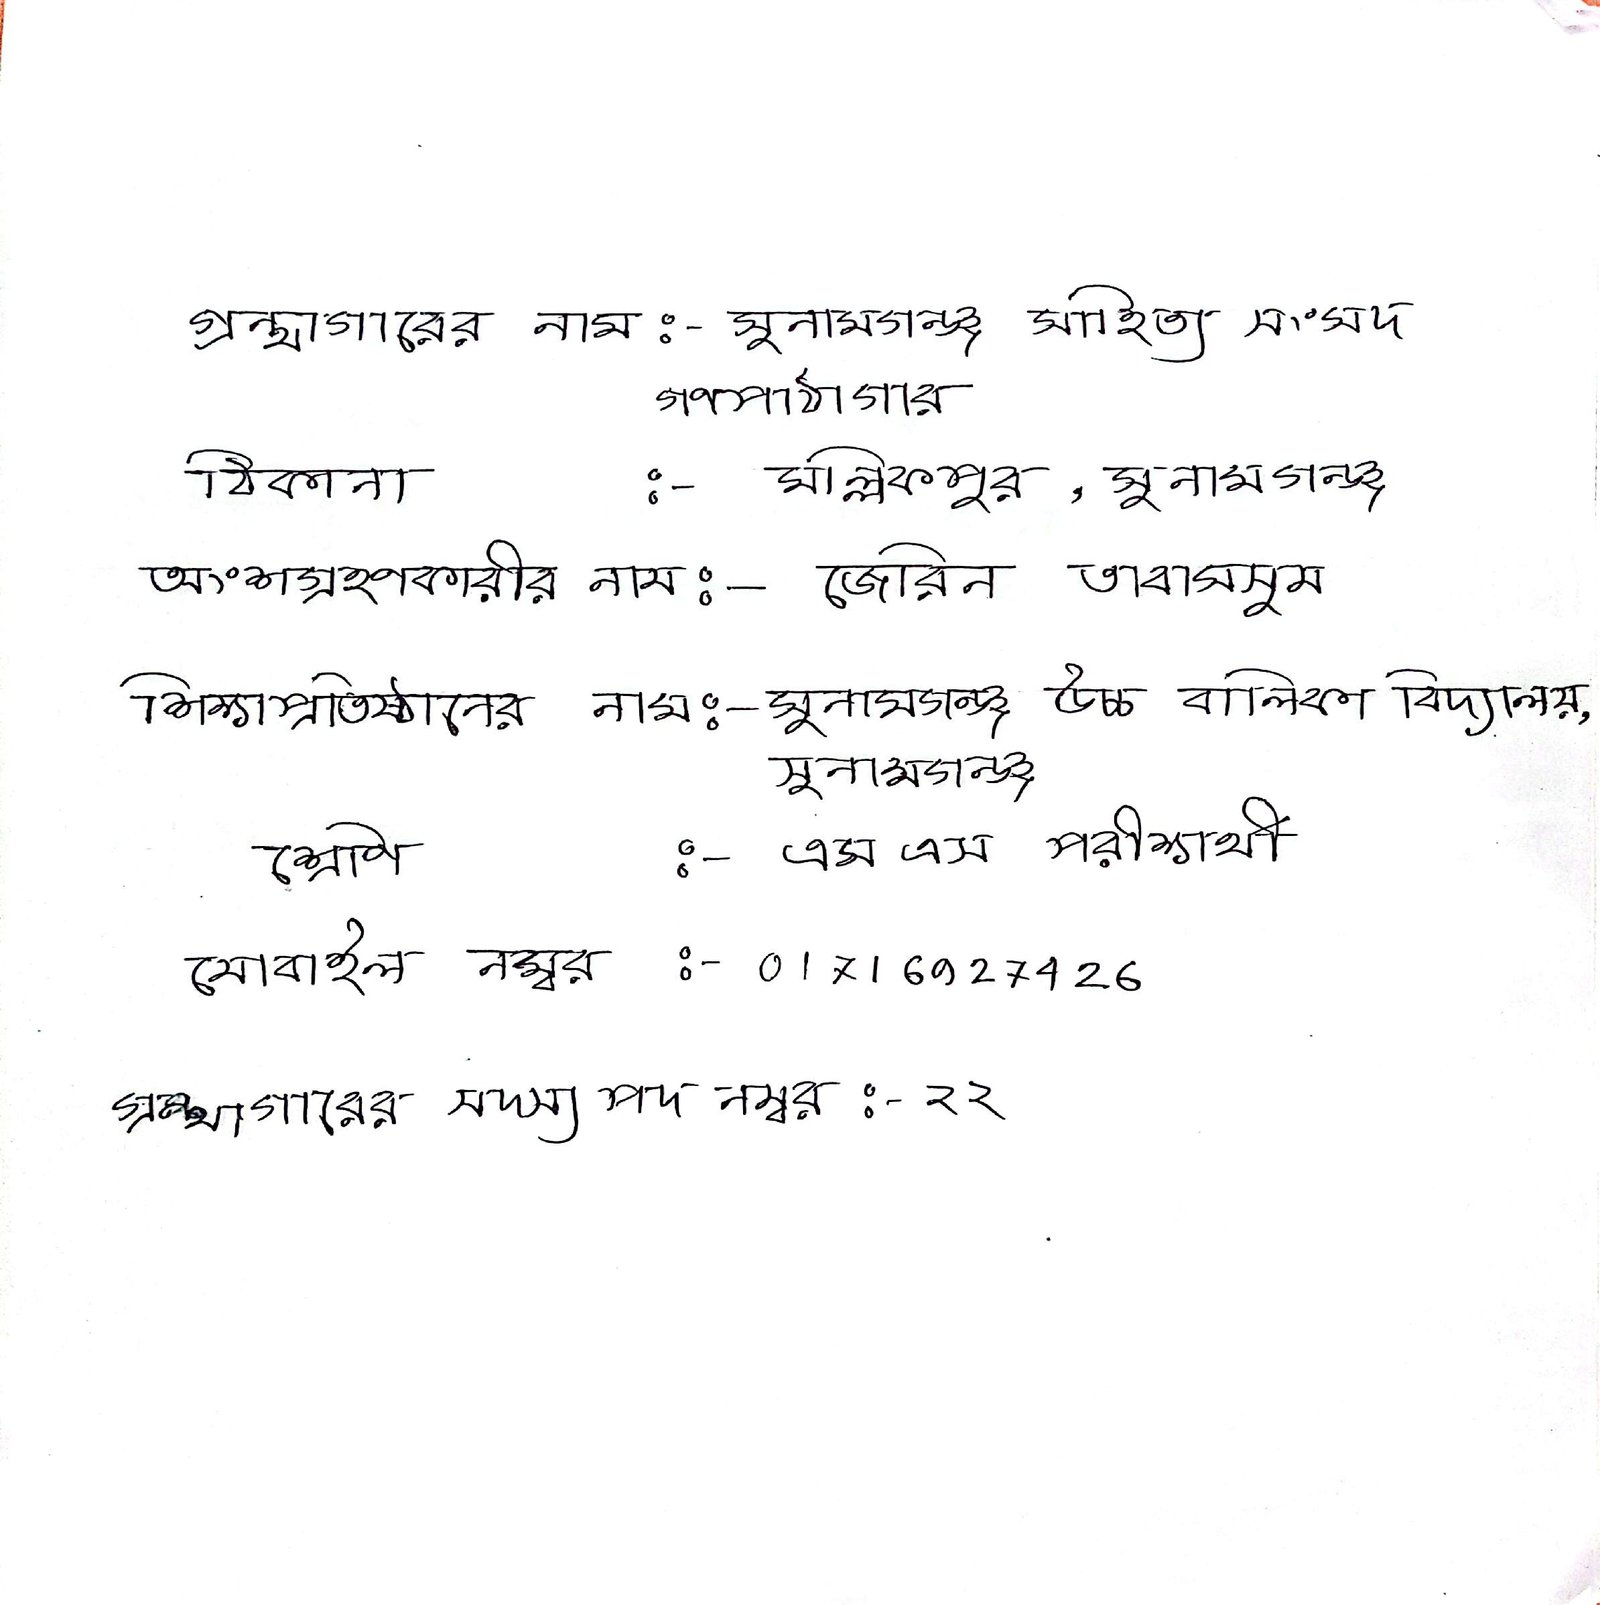 গ্রন্থাগারের নাম ঃ- সুনামগঞ্জ সাহিত্য সংসদ
গণপাঠাগার
ঠিকানা ঃ- মল্লিকপুর, সুনামগঞ্জ
অংশগ্রহণকারীর নাম ঃ- জেরিন তাবাসসুম
শিক্ষাপ্রতিষ্ঠানের নাম ঃ- সুনামগঞ্জ উচ্চ বালিকা বিদ্যালয়,
সুনামগঞ্জ
শ্রেণি ঃ- এস এস পরীক্ষার্থী
মোবাইল নম্বর ঃ- 01716927426
গ্রন্থাগারের সদস্য পদ নম্বর ঃ- ২২